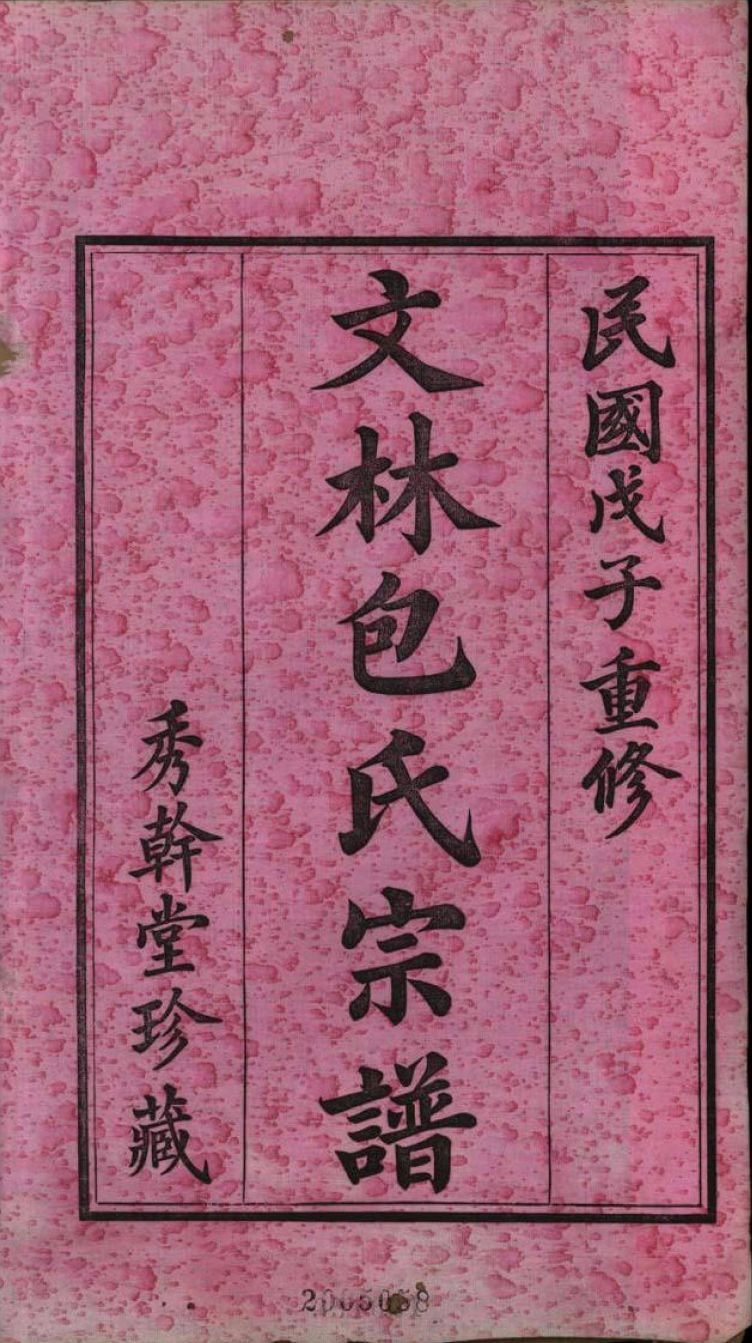 民國戊子重修
文林包氏宗譜
秀幹堂珍藏